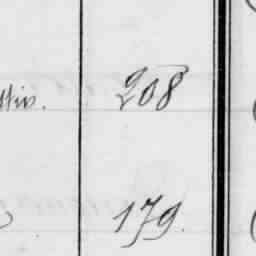 ttiv. 208
179.